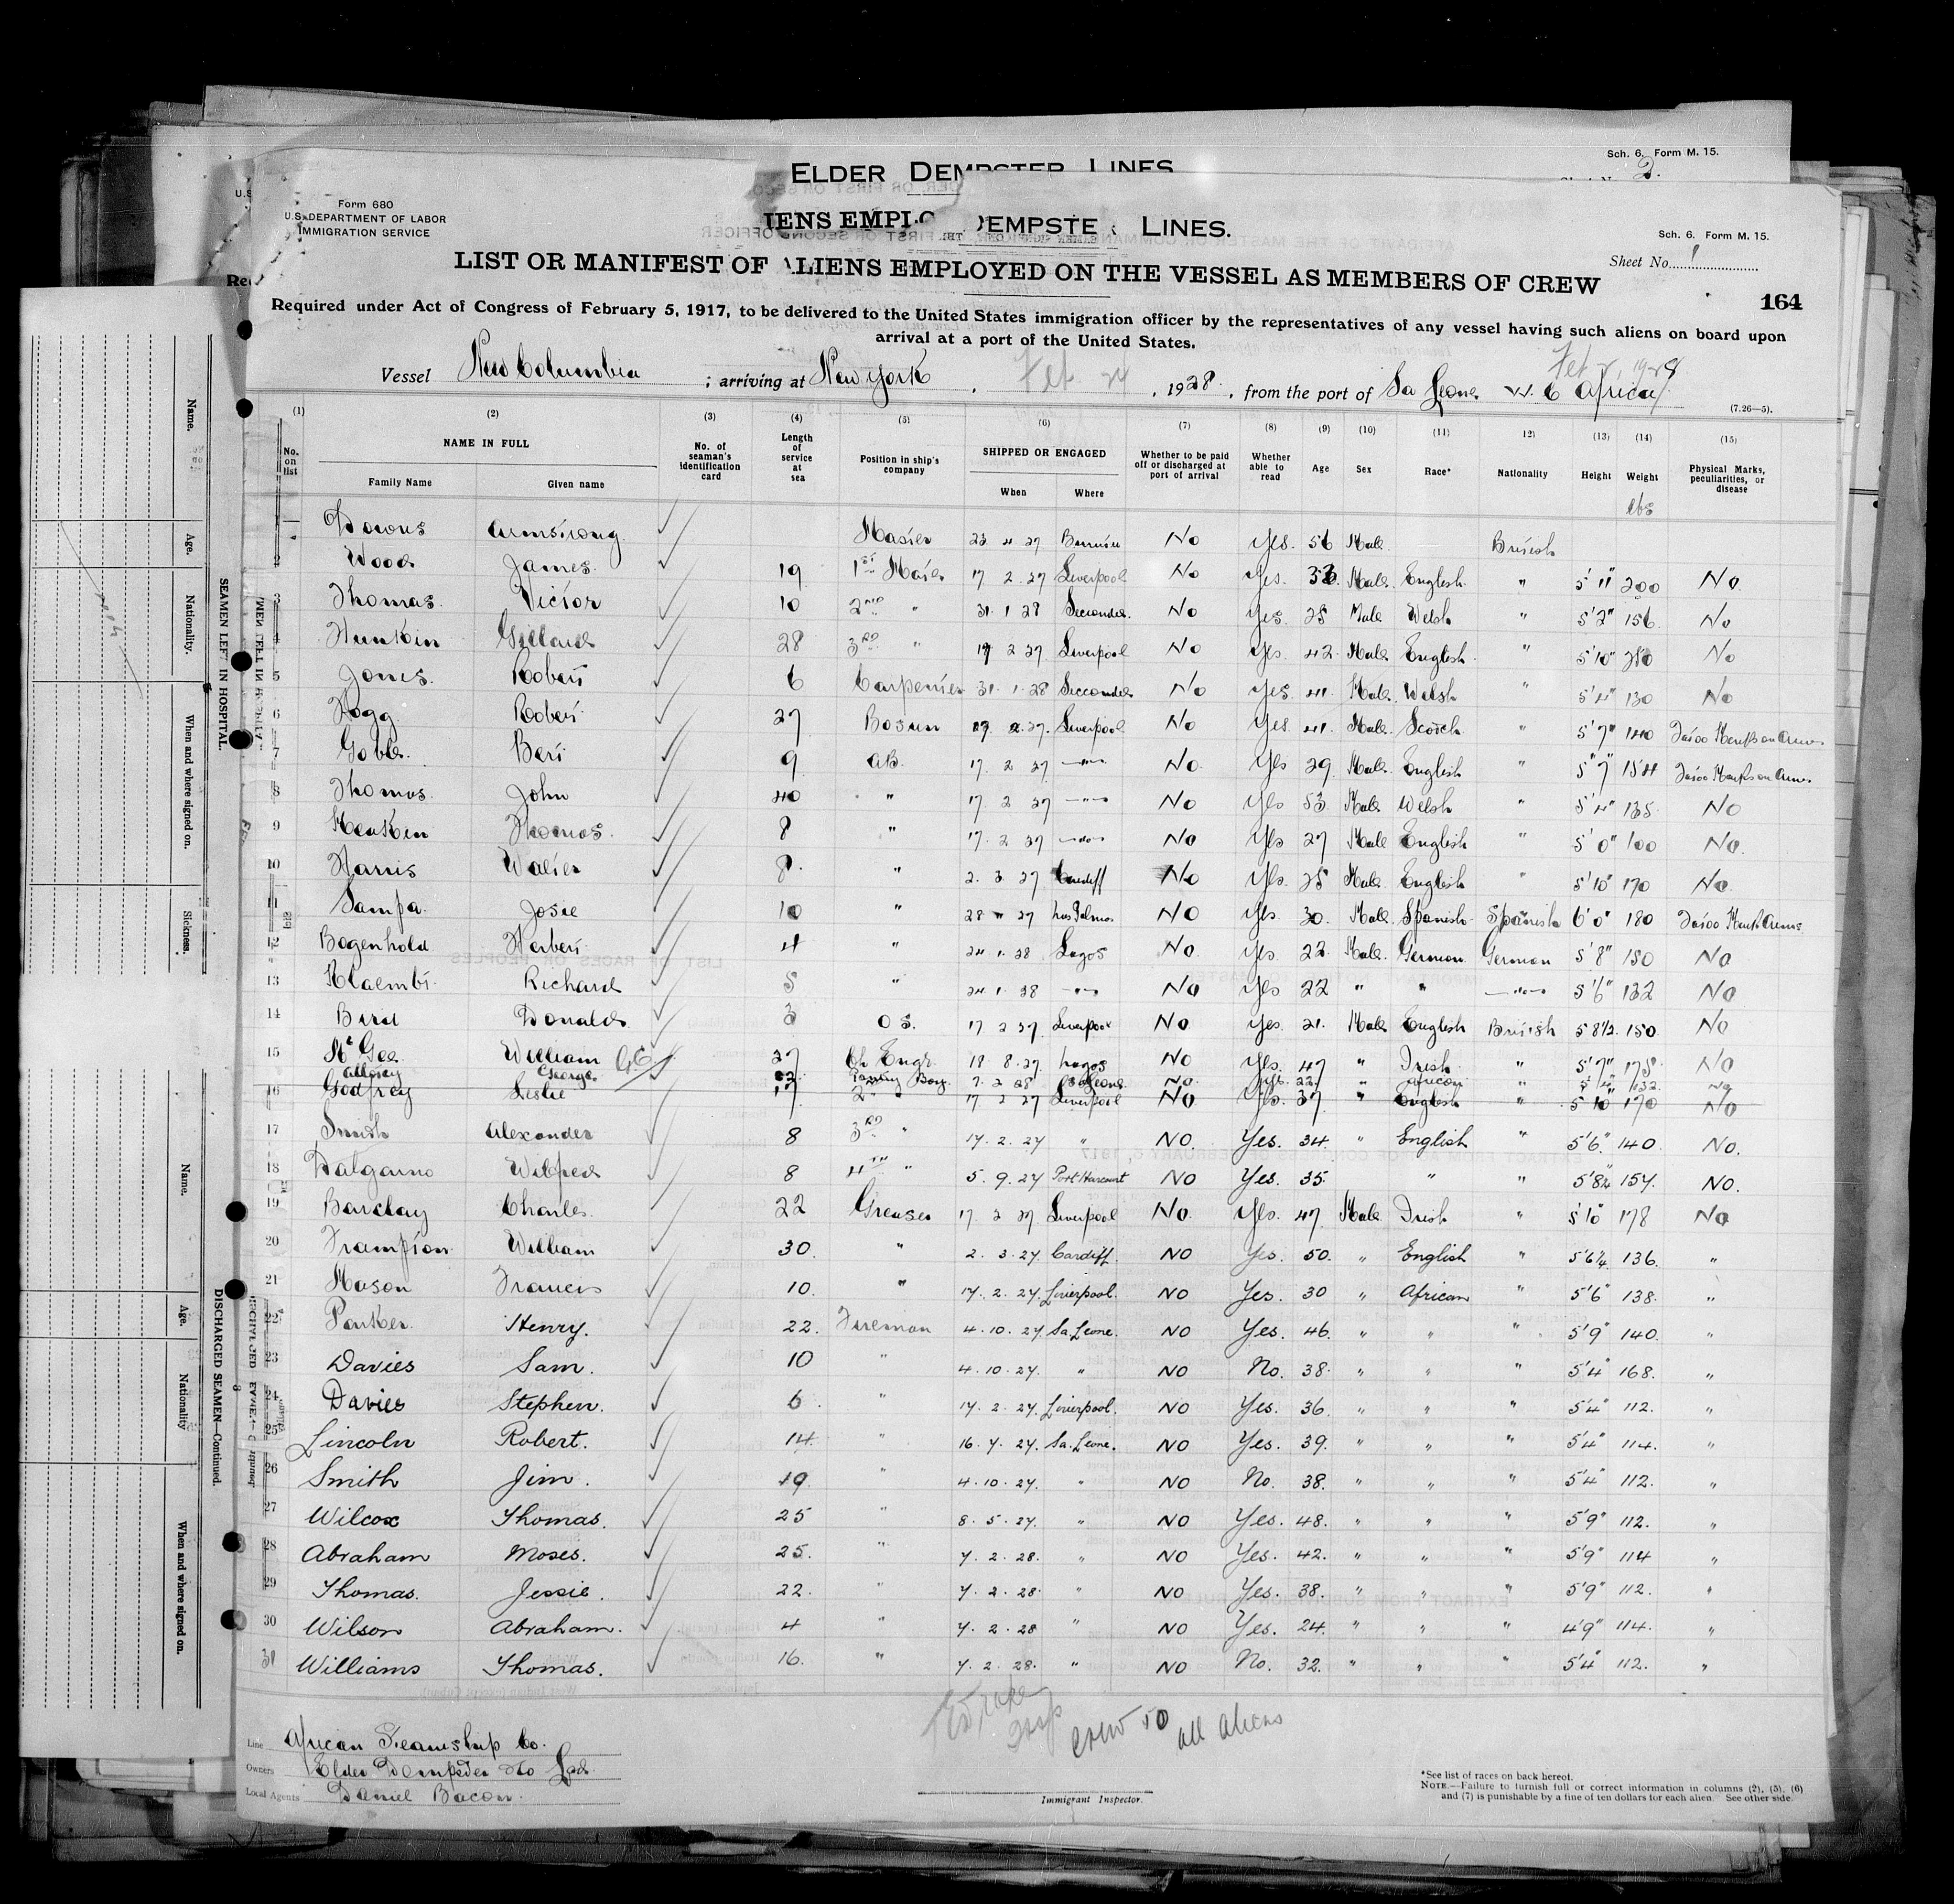 ELDER DEMPSTER LINES
Sch. 6. Form M. 15.
2.
Form 680
U.S. DEPARTMENT OF LABOR
IMMIGRATION SERVICE
IENS EMPLO
DEMPSTER LINES.
Sch. 6. Form M. 15.
Sheet No. 1
LIST OR MANIFEST OF ALIENS EMPLOYED ON THE VESSEL AS MEMBERS OF CREW
164
Required under Act of Congress of February 5, 1917, to be delivered to the United States immigration officer by the representatives of any vessel having such aliens on board upon
arrival at a port of the United States.
Vessel New Columbia ; arriving at New York , Feb 24 , 1928. , from the port of Sa Leone W. C Africa
(7.26—5).
(1) (2) (3) (4) (5) (6) (7) (8) (9) (10) (11) (12) (13) (14) (15)
No. on list NAME IN FULL Family Name Given name No. of seaman's identification card Length of service at sea Position in ship's company SHIPPED OR ENGAGED When Where Whether to be paid off or discharged at port of arrival Whether able to read Age Sex Race* Nationality Height Weight Physical Marks, peculiarities, or disease
lbs
Downs Armstrong Master 27 No Yes. 56 Male British
2 Wood James 19 1st Mate 17 2 27 Liverpool No Yes. Male English " 5'11" 200 No
3 Thomas Victor 10 2nd " 31 1 28 Seccondee No Yes. 25 Male Welsh " 5'2" 156 No
4 28 3rd " 17 2 27 Liverpool No Yes. 42 Male English " 5'10" No
5 Jones. Robert 6 Carpenter 31. 1. 28 Seccondee No Yes. 41 Male Welsh " 5'4" 130 No
6 Hogg Robert 27 Bosun 2.27. Liverpool No Yes 41. Male Scotch " 5'7" 140 Tatoo Marks on Arms
7 Goble. Bert 9 AB. 17. 2 27 No Yes 29 Male English " 5"7" 154 Tatoo Marks on Arms
8 Thomas John 40 " 17. 2 27 No Yes 53. Male Welsh " 5'4" 135. No
9 Thomas. 8 " 17. 2 27 No Yes 27 Male English " 5'0" 100 No.
10 Harris Walter 8. " 2. 3. 27 Cardiff No Yes. 25 Male English " 5'10" 170 No.
11 Sampa. Josie 10 " 28 27 Las Palmas No Yes. 30. Male Spanish Spanish 6'0" 180 Tatoo Mark Arms
12 Bogenhold Herbert 4 " 24 1. 28 Lagos No Yes. 22 Male German German 5'8" 150 No
13 Richard 5 " 24. 1. 28 No Yes 22 " " 5'6" 132 No
14 Bird Donald 3 O S. 17 2 27 Liverpool No Yes 21. Male English British 5 8½. 150. No
15 McGee William 27 Ch Engr. 18. 8. 27 Lagos No Yes. 47 " Irish " 5'7" 175. No
George 7. 2 28 Sa Leone No Yes. 22 " African " 132 No
16 Godfrey Leslie 17 2nd " 17 2 27 Liverpool No Yes. 37 " English " 5'10" 170 No
17 Smith Alexander 8 3rd " 17. 2. 27 " NO. Yes. 34. " English " 5'6". 140. No.
18 Dalgarno Wilfred 8 4th " 5. 9. 27 Port Harcourt NO Yes. 35. " " 5'8½ 157. NO.
19 Barclay Charles. 22 Greaser 17 2 27 Liverpool No. Yes. 47 Male Irish " 5'10" 178 No
20 Frampton William 30. " 2. 3. 27. Cardiff. NO Yes. 50. " English " 5'6¼. 136. "
21 Mason Francis 10. " 17. 2. 27. Liverpool. NO Yes. 30 " African " 5'6" 138. "
22 Parker Henry. 22. Fireman 4. 10. 27 Sa Leone. NO Yes. 46. " " " 5'9" 140. "
23 Davies Sam. 10 " 4. 10. 27. " NO No. 38. " " " 5'4" 168. "
24 Davies Stephen. 6 " 17. 2. 27. Liverpool. NO Yes. 36. " " " 5'4" 112. "
25 Lincoln Robert. 14. " 16. 7. 27. Sa. Leone. NO Yes. 39. " " " 5'4" 114. "
26 Smith Jim. 19. " 4. 10. 27. " NO No. 38. " " " 5'4" 112. "
27 Wilcox Thomas. 25 " 8. 5. 27. " NO Yes. 48. " " " 5'9" 112. "
28 Abraham Moses. 25. " 7. 2. 28. " NO Yes. 42. " " " 5'9" 114 "
29 Thomas. Jessie. 22. " 7. 2. 28. " NO Yes. 38. " " " 5'9" 112. "
30 Wilson Abraham. 4 " 7. 2. 28 " NO Yes. 24. " " " 4'9" 114. "
31 Williams Thomas. 16. " 7. 2. 28. " NO No. 32. " " " 5'4" 112. "
crew 50 all aliens
Line African Steamship Co.
Owners Elder Dempster & Co Ltd.
Local Agents Daniel Bacon.
Immigrant Inspector.
*See list of races on back hereof.
NOTE.—Failure to furnish full or correct information in columns (2), (5), (6)
and (7) is punishable by a fine of ten dollars for each alien. See other side.
SEAMEN LEFT IN HOSPITAL.
Name.
Age.
Nationality.
When and where signed on.
Sickness.
DISCHARGED SEAMEN—Continued.
Name.
Age.
Nationality
When and where signed on.